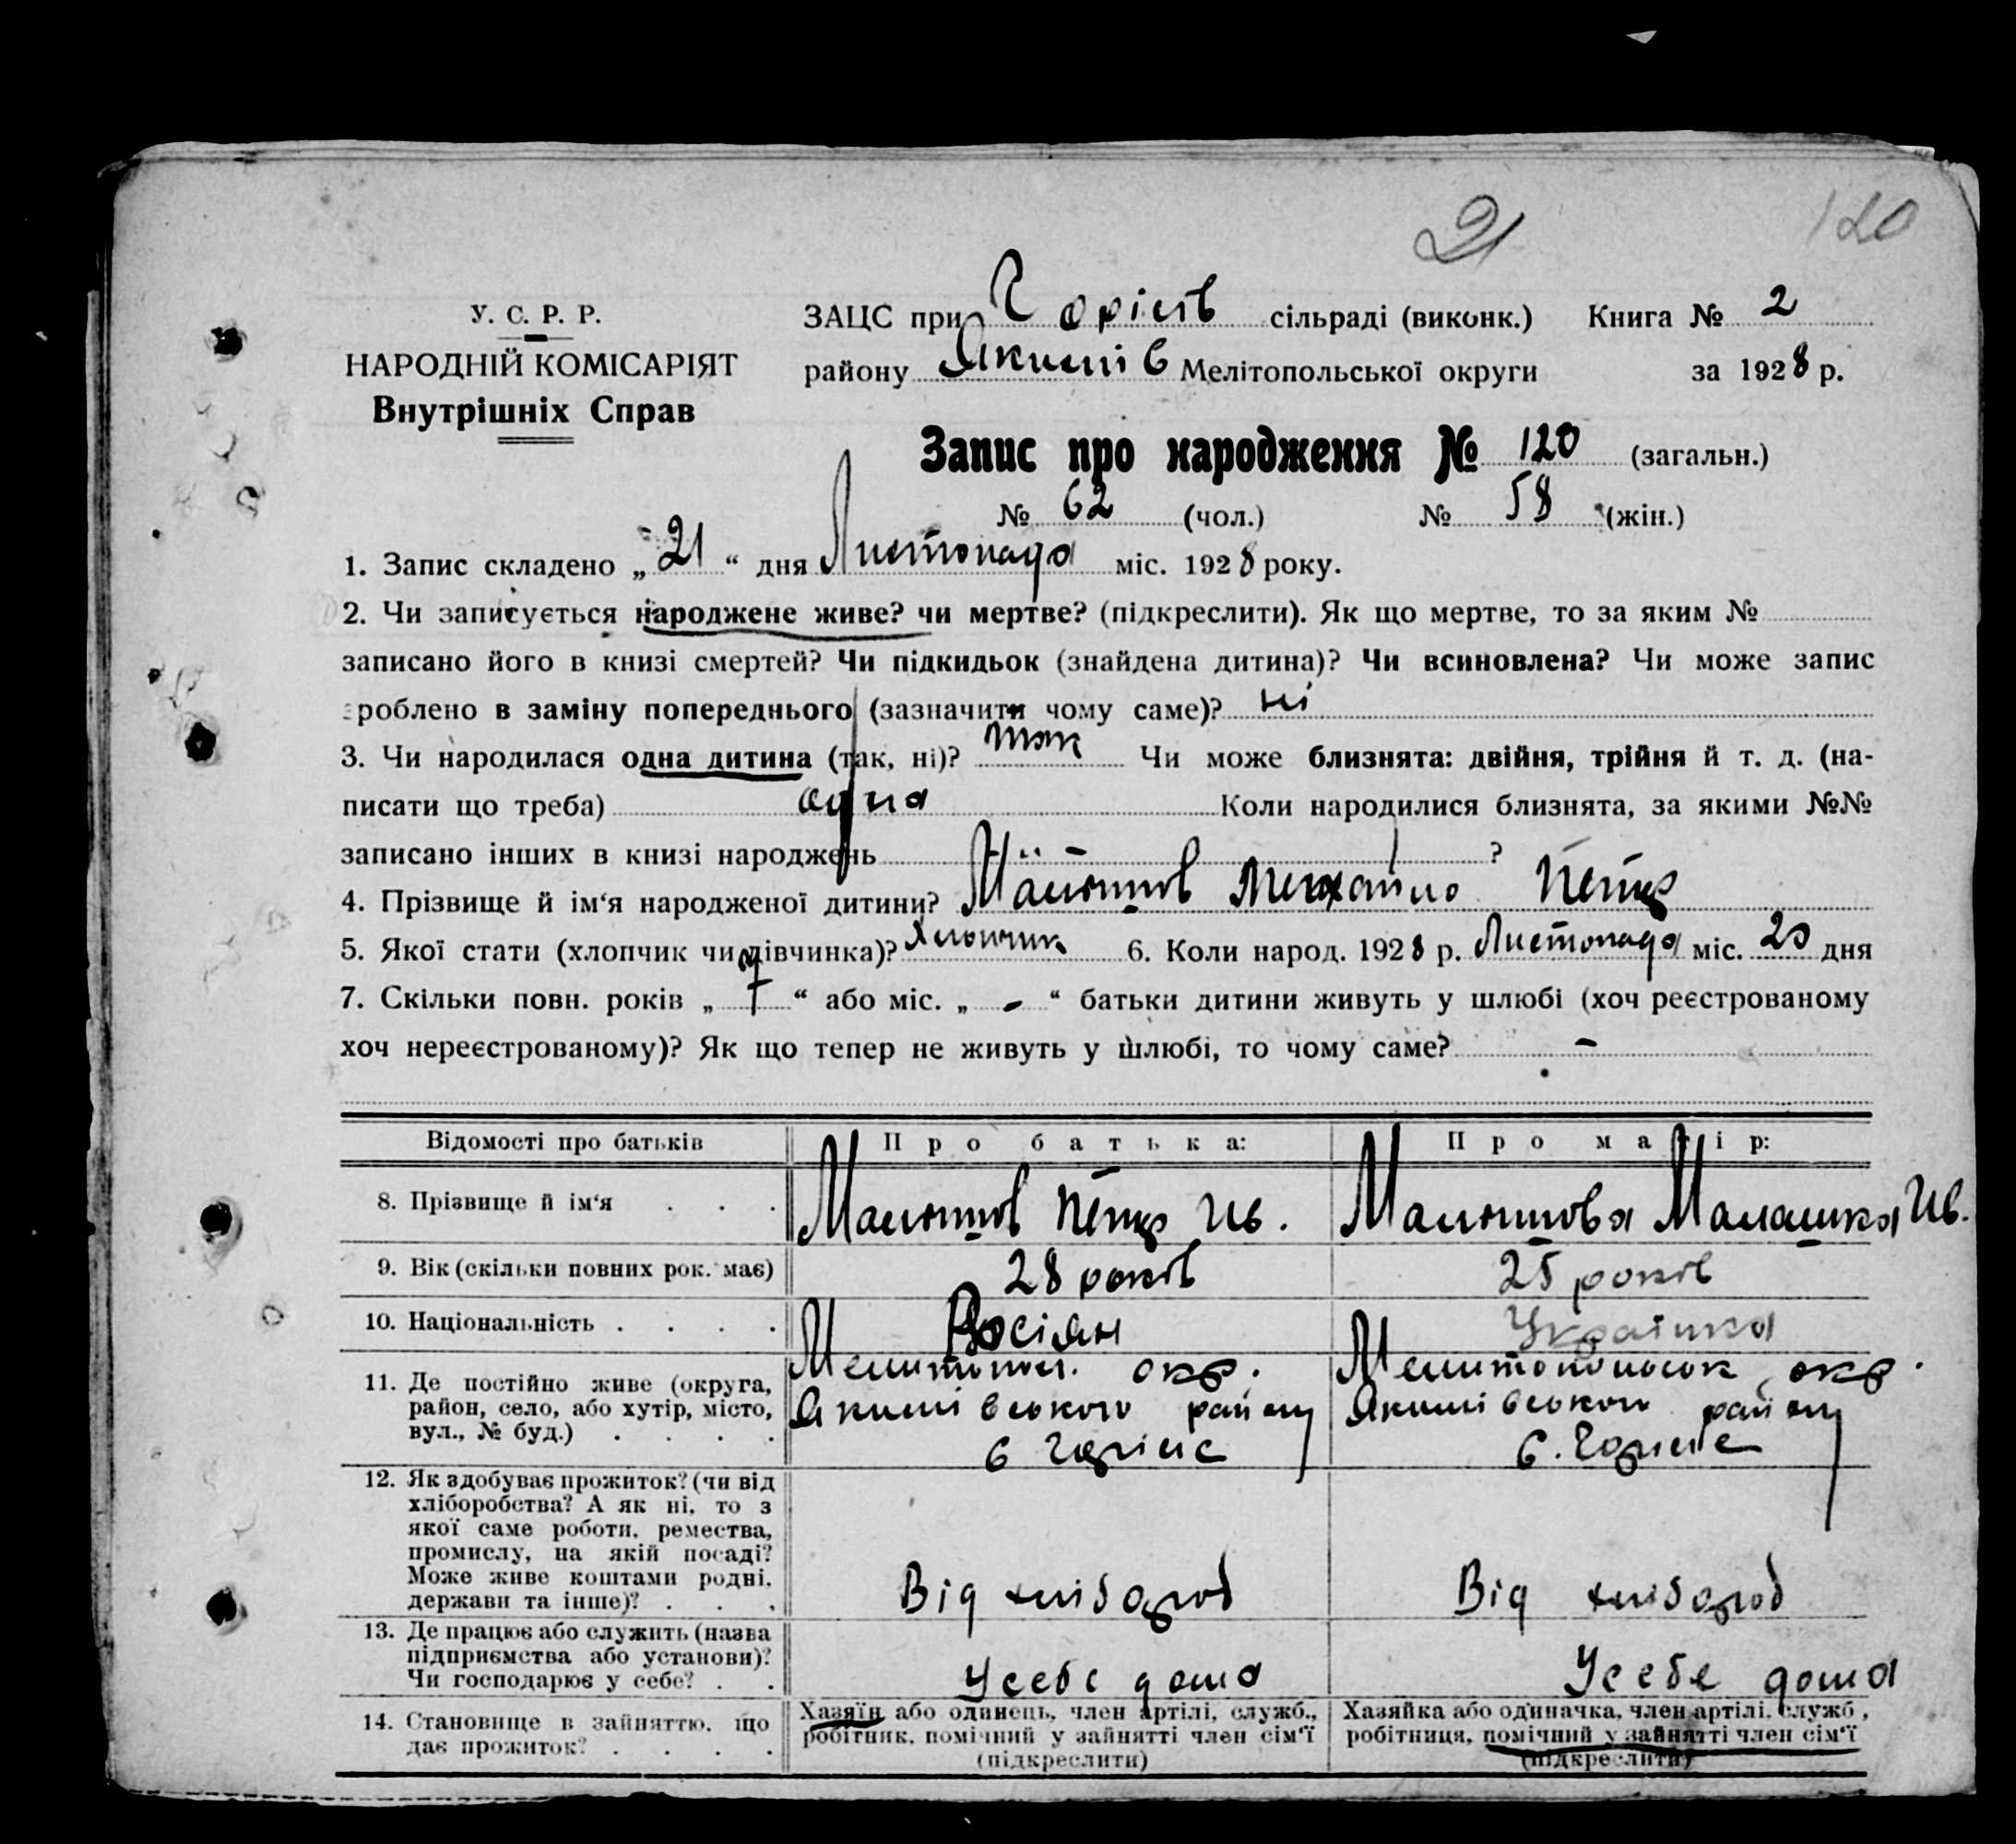 21 120
У. С. Р. Р.
НАРОДНІЙ КОМІСАРІЯТ
Внутрішніх Справ
ЗАЦС при сільраді (виконк.) Книга № 2
району Якимів Мелітопольської округи за 1928 р.
Запис про народження № 120 (загальн.)
№ 62 (чол.) № 58 (жін.)
1. Запис складено „ 21 “ дня Листопада міс. 1928 року.
2. Чи записується народжене живе? чи мертве? (підкреслити). Як що мертве, то за яким №
записано його в книзі смертей? Чи підкидьок (знайдена дитина)? Чи всиновлена? Чи може запис
зроблено в заміну попереднього (зазначити чому саме)? ні
3. Чи народилася одна дитина (так, ні)? так Чи може близнята: двійня, трійня й т. д. (на-
писати що треба) одна Коли народилися близнята, за якими №№
записано інших в книзі народжень ?
4. Прізвище й ім‘я народженої дитини? Малютов Михайло Петр
5. Якої стати (хлопчик чи дівчинка)? Хлопчик 6. Коли народ. 1928 р. Листопада міс. 20 дня
7. Скільки повн. років „ 7 “ або міс. „ - “ батьки дитини живуть у шлюбі (хоч реєстрованому
хоч нереєстрованому)? Як що тепер не живуть у шлюбі, то чому саме? -
Відомості про батьків Про батька: Про матір:
8. Прізвище й ім‘я . . . Малютов Петр Ив. Малютова Малашка Ив.
9. Вік (скільки повних рок. має) 28 років 25 років
10. Національність . . . . Росіян Українка
11. Де постійно живе (округа, район, село, або хутір, місто, вул., № буд.) . . . .
Мелитопол. окр.
Якимівського району
Мелитопольськ окр.
Якимівського району
12. Як здобуває прожиток? (чи від хліборобства? А як ні, то з якої саме роботи, ремества, промислу, на якій посаді? Може живе коштами родні, держави та інше)? . . .
Від хлібороб Від хлібороб
13. Де працює або служить (назва підприємства або установи)? Чи господарює у себе? . .
У себе дома У себе дома
14. Становище в зайняттю, що дає прожиток? . . . .
Хазяїн або одинець, член артілі, служб.,
робітник, помічний у зайнятті член сім‘ї
(підкреслити)
Хазяйка або одиначка, член артілі, служб,
робітниця, помічний у зайнятті член сім‘ї
(підкреслити)